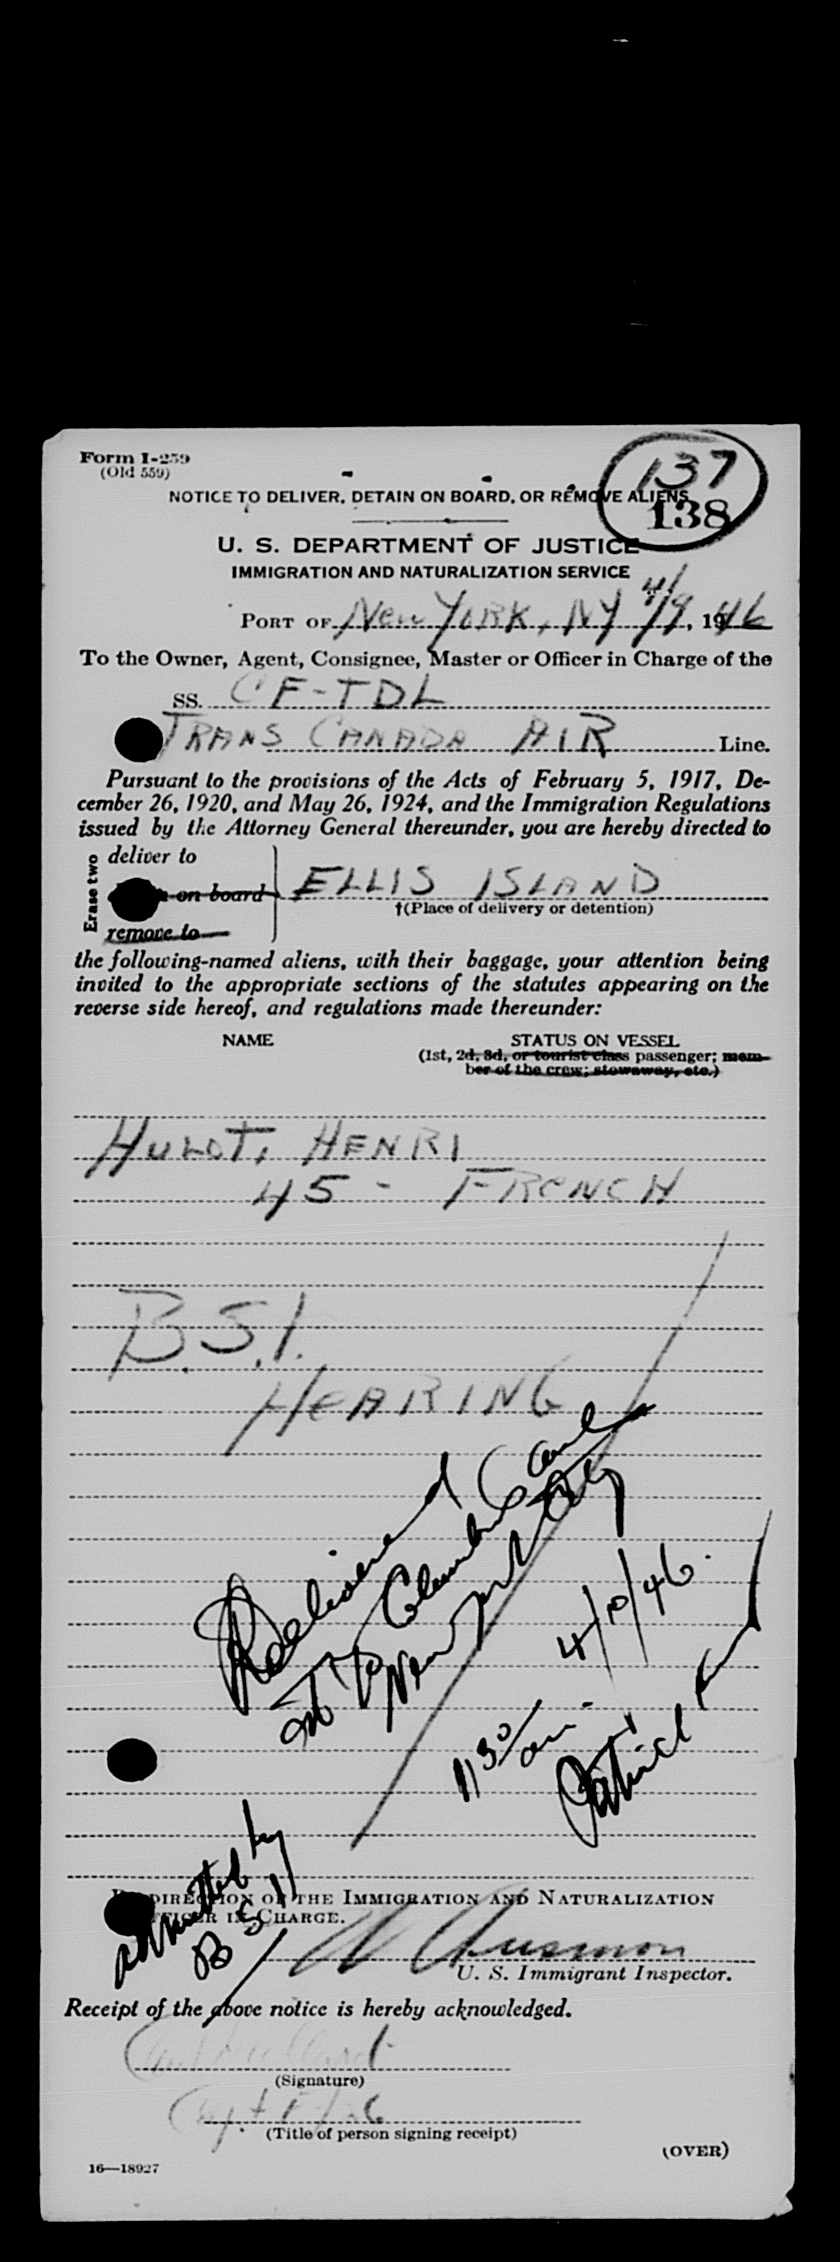 Form I-259
(Old 559)
137
138
NOTICE TO DELIVER, DETAIN ON BOARD, OR REMOVE ALIENS
U. S. DEPARTMENT OF JUSTICE
IMMIGRATION AND NATURALIZATION SERVICE
PORT OF New YORK, NY 4/9, 1946
To the Owner, Agent, Consignee, Master or Officer in Charge of the
SS. CF-TDL
TRANS CANADA AIR Line.
Pursuant to the provisions of the Acts of February 5, 1917, De-
cember 26, 1920, and May 26, 1924, and the Immigration Regulations
issued by the Attorney General thereunder, you are hereby directed to
Erase two
deliver to
on board ELLIS ISLAND
†(Place of delivery or detention)
remove to
the following-named aliens, with their baggage, your attention being
invited to the appropriate sections of the statutes appearing on the
reverse side hereof, and regulations made thereunder:
NAME STATUS ON VESSEL
(1st, 2d, 3d, or tourist class passenger; mem-
ber of the crew; stowaway, etc.)
HULOT, HENRI
45 - FRENCH
B.S.I.
HEARING
Delivered
at
New York City
4/10/46.
11 30/am.
Patrick
admitted by
BSI
BY DIRECTION OF THE IMMIGRATION AND NATURALIZATION
OFFICER IN CHARGE.
U. S. Immigrant Inspector.
Receipt of the above notice is hereby acknowledged.
(Signature)
(Title of person signing receipt)
(OVER)
16—18927